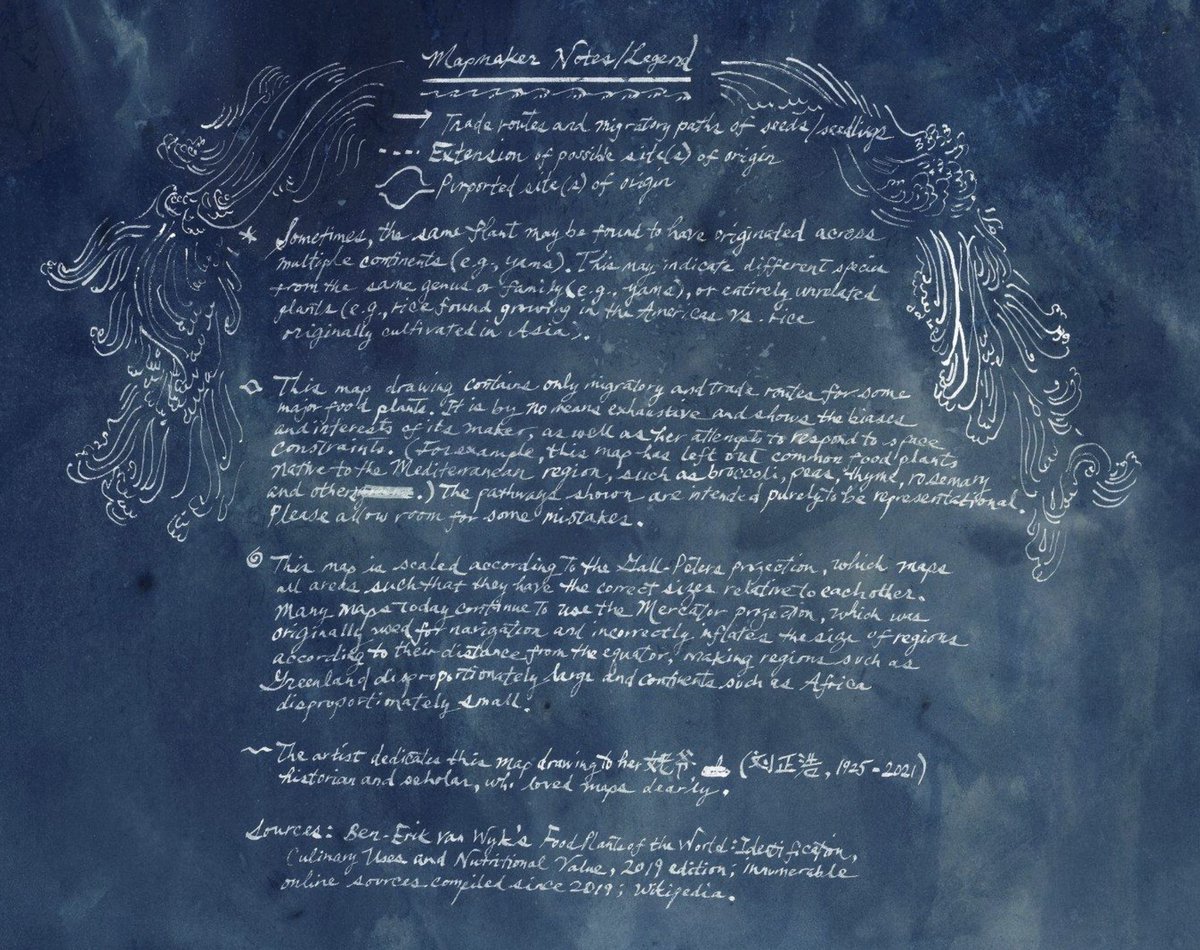 Mapmaker Notes/Legend
Trade routes and migratory paths of seeds/seedlings
Extension of possible site(s) of origin
Purported site(s) of origin
* Sometimes, the same plant may be found to have originated across
multiple continents (e.g., yams). This may indicate different species
from the same genus or family (e.g., yams), or entirely unrelated
plants (e.g., rice found growing in the Americas vs. rice
originally cultivated in Asia).
This map drawing contains only migratory and trade routes for some
major food plants. It is by no means exhaustive and shows the biases
and interests of its maker, as well as her attempts to respond to space
constraints. (For example, this map has left out common food plants
native to the Mediterranean region, such as broccoli, peas, thyme, rosemary
and others.) The pathways shown are intended purely to be representational.
Please allow room for some mistakes.
This map is scaled according to the Gall-Peters projection, which maps
all areas such that they have the correct sizes relative to each other.
Many maps today continue to use the Mercator projection, which was
originally used for navigation and incorrectly inflates the size of regions
according to their distance from the equator, making regions such as
Greenland disproportionately large and continents such as Africa
disproportionately small.
The artist dedicates this map drawing to her (刘正浩, 1925-2021)
historian and scholar, who loved maps dearly.
Sources: Ben-Erik van Wyk's Food Plants of the World: Identification,
Culinary Uses and Nutritional Value, 2019 edition; innumerable
online sources compiled since 2019; Wikipedia.